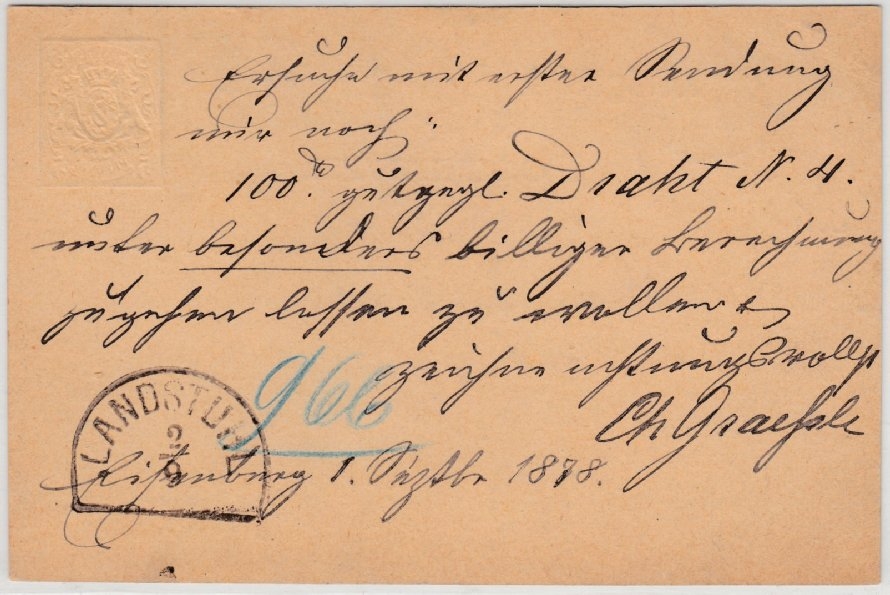 Ersuche mit erster Sendung
mir noch
100 ℔. gutgegl. Draht N. 4.
unter besonders billiger Berechnung
zugehen lassen zu wollen &
zeichne achtungsvollst
Ch Graessle
966
LANDSTUHL
2 9
Eisenberg 1. Septbr 1878.